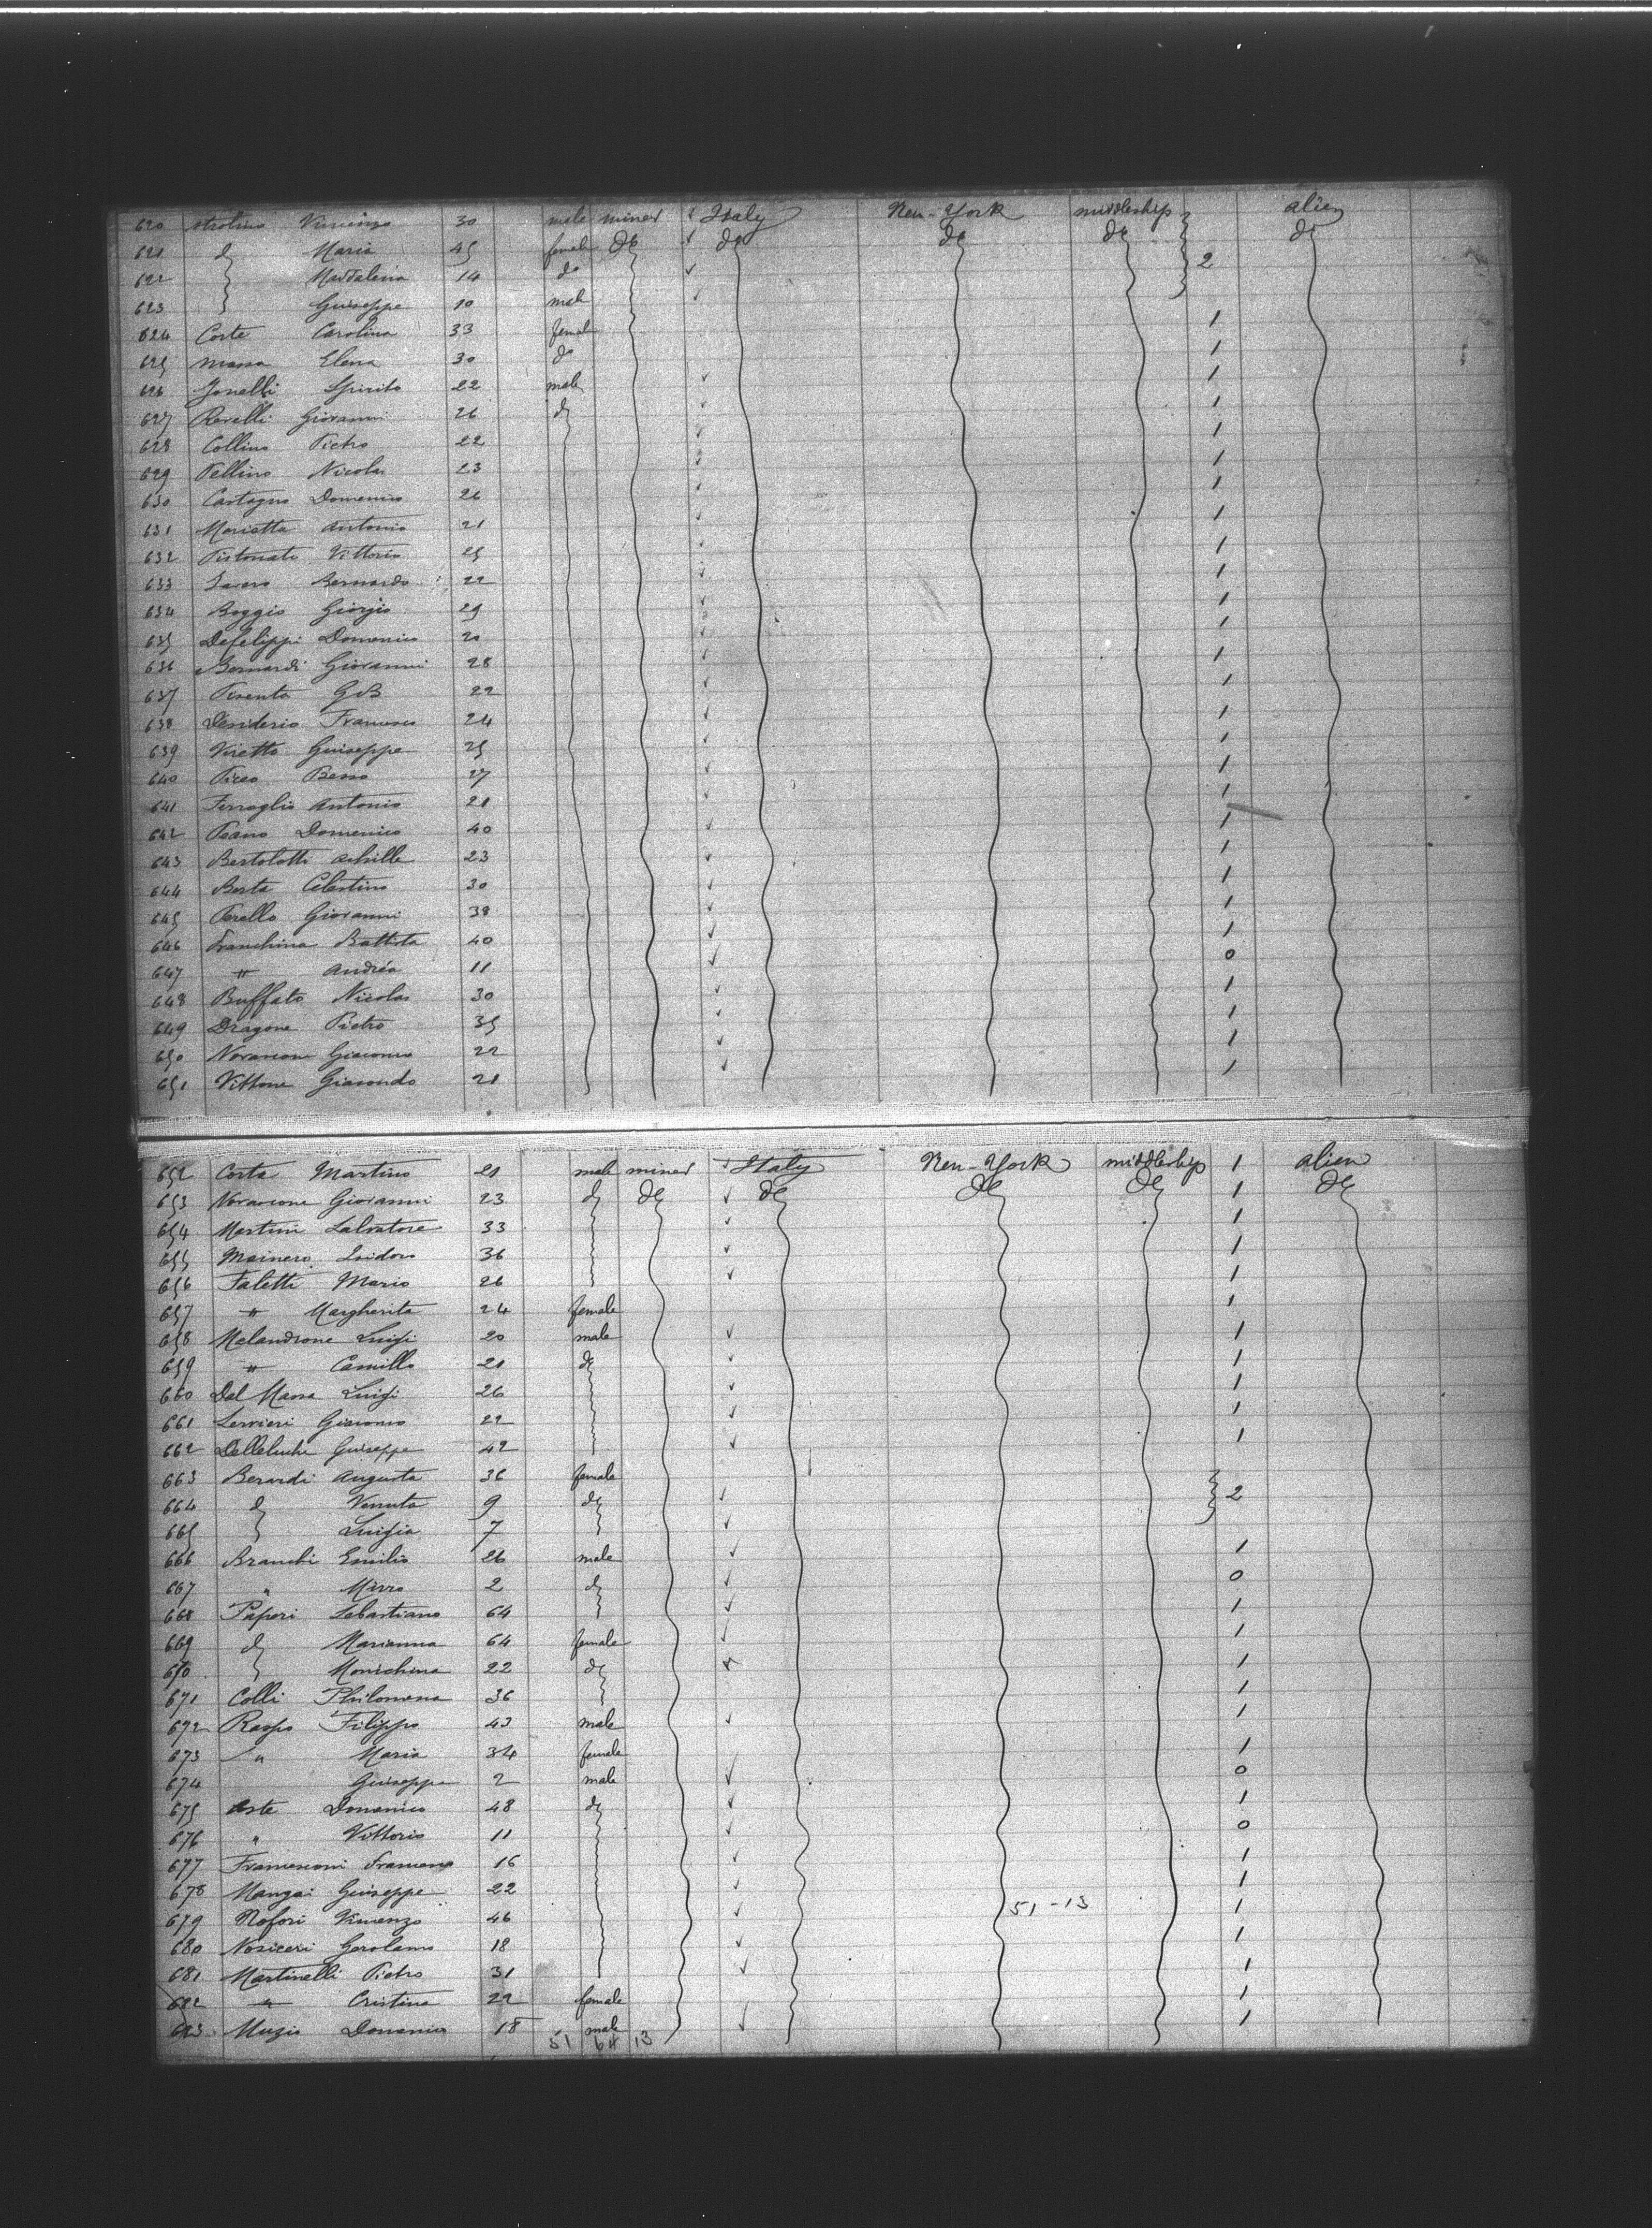 620 Strolino Vincenzo 30 male miner Italy New-York middleship alien
621 do Maria 45 female do do do do do
622 Maddalena 14 do 2
623 Guiseppe 10 male
624 Corte Carolina 33 female 1
625 Massa Elena 30 do 1
626 Jonelli Spirito 22 male 1
627 Revelli Giovanni 26 do 1
628 Collino Pietro 22 1
629 Pellino Nicola 23 1
630 Castagno Domenico 26 1
631 Marietta Antonio 21 1
632 Pistonati Vittorio 25 1
633 Bernardo 22 1
634 Boggio Giorgio 29 1
635 Defelippi Domenico 20 1
636 Bernardi Giovanni 28 1
637 GB 22 1
638 Desiderio Francesco 24 1
639 Viretto Guiseppe 25 1
640 Besso 27 1
641 Ferraglio Antonio 21 1
642 Peano Domenico 40 1
643 Bertolotti Achille 23 1
644 Berta Celestino 30 1
645 Perello Giovanni 38 1
646 Franchina Battista 40 1
647 " Andréa 11 0
648 Buffato Nicolas 30 1
649 Dragone Pietro 35 1
650 Novarione Giacomo 22 1
651 Vittone Giacondo 21 1
652 Corta Martino 21 male miner Italy New-York middleship 1 alien
653 Novarione Giovanni 23 do do do do do 1 do
654 Martini Salvatore 33 1
655 Mainero Isidoro 36 1
656 Faletti Mario 26 1
657 " Margherita 24 female 1
658 Melandrone Luigi 20 male 1
659 " Camillo 21 do 1
660 Dal Massa Luigi 26 1
661 Servieri Giacomo 22 1
662 Delleluche Guiseppe 42 1
663 Berardi Augusta 36 female
664 do Venuta 9 do 2
665 Luigia 7
666 Branchi Emilio 26 male 1
667 " Mirro 2 do 0
668 Paperi Sebastiano 64 1
669 do Marianna 64 female 1
670 Monichina 22 do 1
671 Colli Philomena 36 1
672 Raspo Filippo 43 male 1
673 " Maria 34 female 1
674 Guiseppe 2 male 0
675 Aste Domenico 48 do 1
676 " Vittorio 11 0
677 Francesconi Francesco 16 1
678 Mangai Guiseppe 22 1
679 Nofori Vincenzo 46 51-13 1
680 Nosiceri Gerolamo 18 1
681 Martinelli Pietro 31 1
682 " Cristina 22 female 1
683 Muzio Domenico 18 male 1
51 64 13